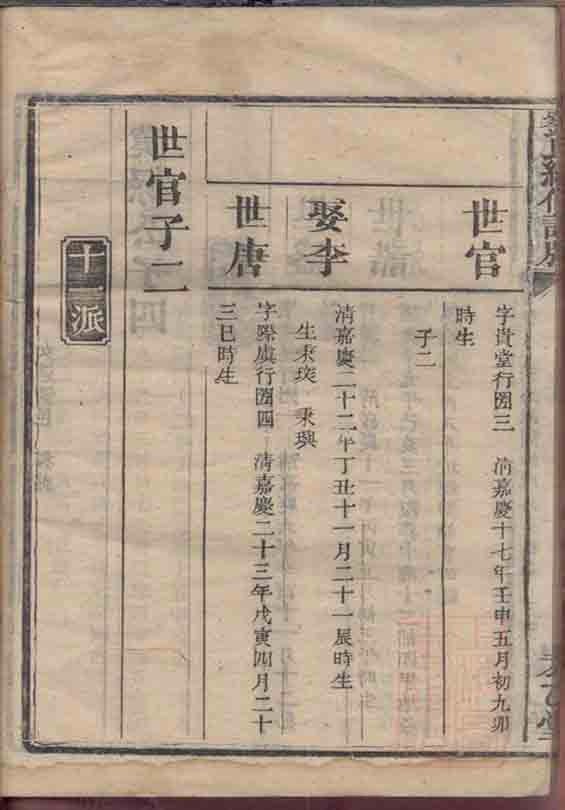 世官
字貴堂行團三　清嘉慶十七年壬申五月初九卯
時生
子二
娶李
清嘉慶二十二年丁丑十一月二十一辰時生
生秉琰　秉璵
世唐
字際虞行團四　清嘉慶二十三年戊寅四月二十
三巳時生
世官子二
十二派